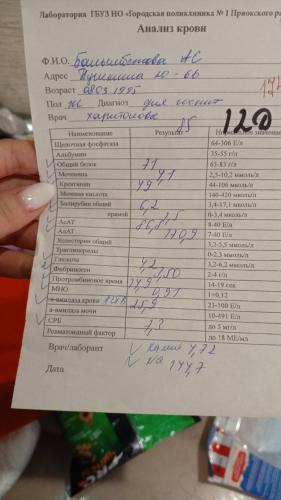 Лаборатория ГБУЗ НО «Городская поликлиника № 1 Приокского ра
Анализ крови
Ф.И.О. АС
Адрес Пушкина 10-66
Возраст 08.03.1995
Пол Диагноз
Врач Харитонова
Наименование Результат Нормальное значение
Щелочная фосфатаза 64-306 Е/л
Альбумин 35-55 г/л
Общий белок 71 65-85 г/л
Мочевина 4,1 2,5-10,2 ммоль/л
Креатинин 49 44-106 мколь/л
Мочевая кислота 140-420 мколь/л
Билирубин общий 6,2 3,4-17,1 мколь/л
прямой 1,5 0-3,4 мколь/л
АсАТ 8-40 Е/л
АлАТ 170,9 7-40 Е/л
Холестерин общий 3,2-5,5 ммоль/л
Триглицериды 0-2,3 ммоль/л
Глюкоза 4,2 3,2-6,2 ммоль/л
Фибриноген 2-4 г/л
Протромбиновое время 14-19 сек
МНО 0,91 1+0,12
а-амилаза крови 25,9 25-300 Е/л
а-амилаза мочи 10-491 Е/л
СРБ 7,3 до 5 мг/л
Ревматоидный фактор до 18 МЕ/мл
Врач/лаборант Калий 4,72
Na 144,7
Дата